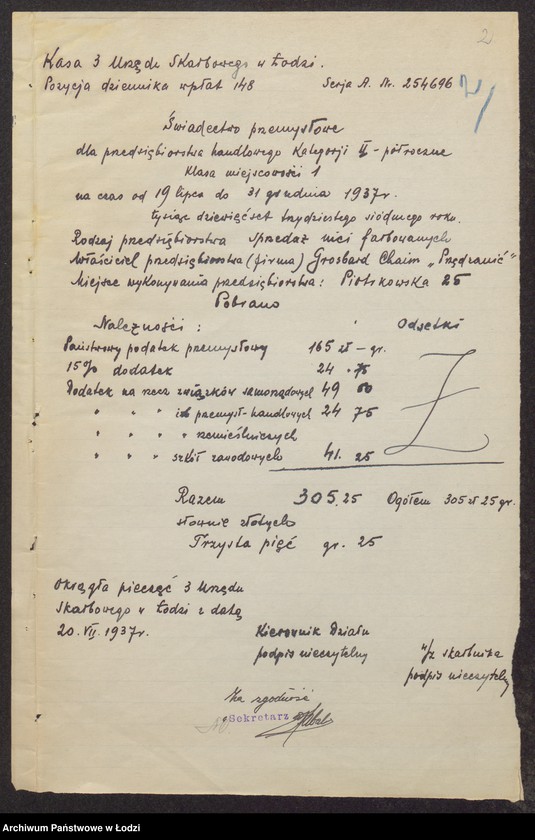 2
Kasa 3 Urzędu Skarbowego w Łodzi.
Pozycja dziennika wpłat 148 Serja A. Nr. 254696
Świadectwo przemysłowe
dla przedsiębiorstwa handlowego Kategorji II - półroczne
Klasa miejscowości 1
na czas od 19 lipca do 31 grudnia 1937r.
tysiąc dziewięćset trzydziestego siódmego roku.
Rodzaj przedsiębiorstwa sprzedaż nici farbowanych
Właściciel przedsiębiorstwa (firma) Grosbard Chaim „Przędzanić"
Miejsce wykonywania przedsiębiorstwa: Piotrkowska 25
Pobrano
Należności: Odsetki
Państwowy podatek przemysłowy 165 zł - gr.
15% dodatek 24 . 75
Dodatek na rzecz związków samorządowych 49 50
" " " izb przemysł-handlowych 24 75
" " " " rzemieślniczych
" " " szkół zawodowych 41. 25
Razem 305.25 Ogółem 305 zł 25 gr.
słownie złotych
Trzysta pięć gr. 25
Okrągła pieczęć 3 Urzędu
Skarbowego w Łodzi z datą
20. VII. 1937r.
Kierownik Działu
podpis nieczytelny
w/z skarbnika
podpis nieczytelny
Za zgodność
Sekretarz
Archiwum Państwowe w Łodzi